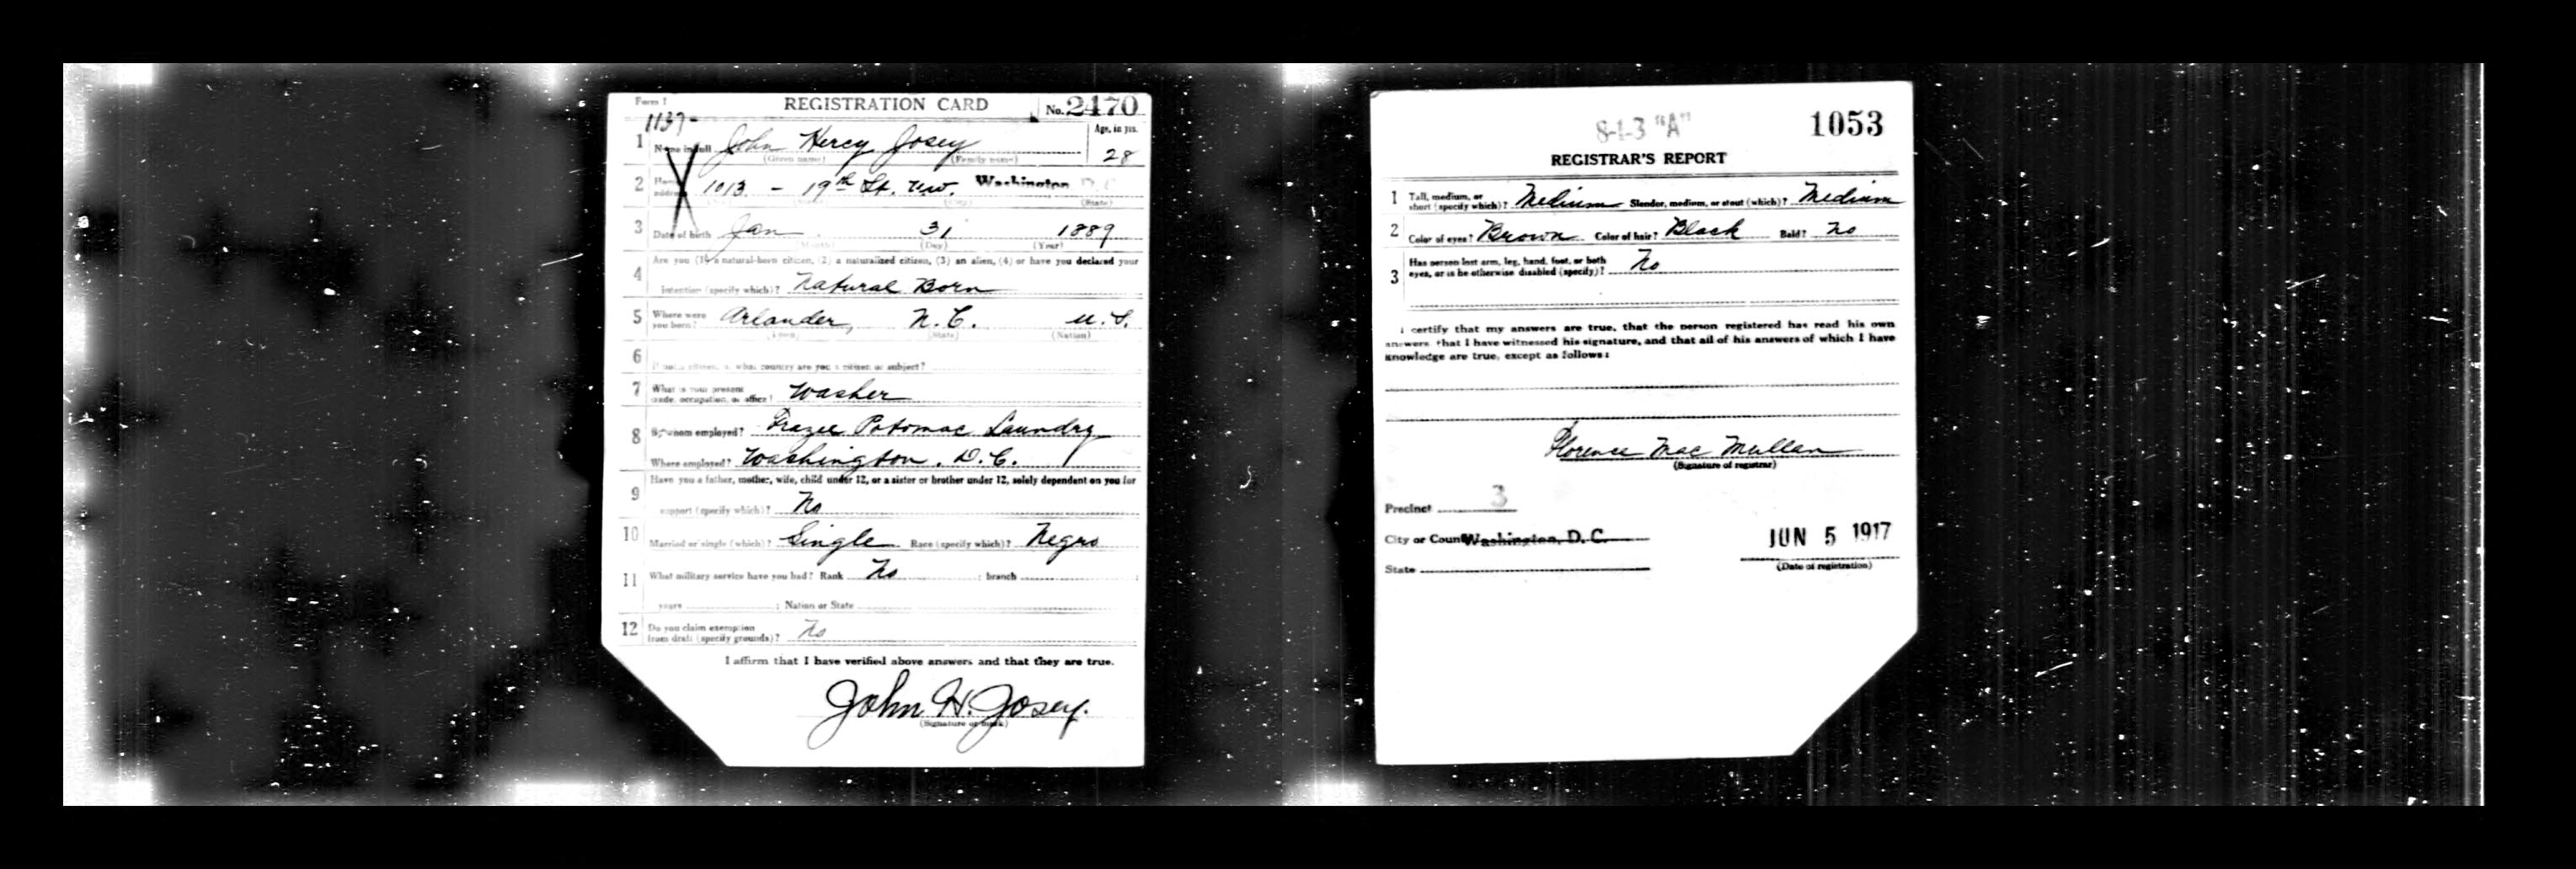 Form 1 REGISTRATION CARD No. 2470
1137-
1 Name in full John Hercy Josey Age, in yrs.
(Given name) (Family name) 28
2 Home address 1013 - 19th St. N.W. Washington D.C.
(No.) (Street) (City) (State)
3 Date of birth Jan 31 1889
(Month) (Day) (Year)
4 Are you (1) a natural-born citizen, (2) a naturalized citizen, (3) an alien, (4) or have you declared your
intention (specify which)? Natural Born
5 Where were you born? Arlander, N.C. U.S.
(Town) (State) (Nation)
6 If not a citizen, of what country are you a citizen or subject?
7 What is your present trade, occupation, or office? Washer
8 By whom employed? Frazee Potomac Laundry
Where employed? Washington, D.C.
9 Have you a father, mother, wife, child under 12, or a sister or brother under 12, solely dependent on you for
support (specify which)? No
10 Married or single (which)? Single Race (specify which)? Negro
11 What military service have you had? Rank No ; branch ;
years ; Nation or State
12 Do you claim exemption from draft (specify grounds)? No
I affirm that I have verified above answers and that they are true.
John H. Josey.
(Signature or mark)
8-1-3 "A" 1053
REGISTRAR'S REPORT
1 Tall, medium, or short (specify which)? Medium Slender, medium, or stout (which)? Medium
2 Color of eyes? Brown Color of hair? Black Bald? No
3 Has person lost arm, leg, hand, foot, or both eyes, or is he otherwise disabled (specify)? No
I certify that my answers are true, that the person registered has read his own
answers, that I have witnessed his signature, and that all of his answers of which I have
knowledge are true, except as follows:
Florence Mac Mullan
(Signature of registrar)
Precinct 3
City or County Washington, D. C. JUN 5 1917
State (Date of registration)